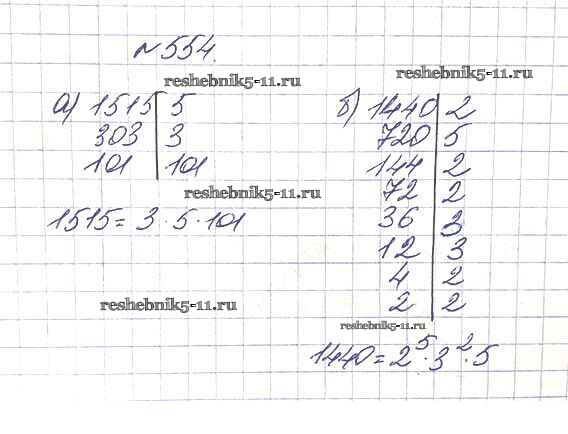 №554.
reshebnik5-11.ru
reshebnik5-11.ru
а) 1515 | 5
303 | 3
101 | 101
reshebnik5-11.ru
1515 = 3 · 5 · 101
reshebnik5-11.ru
б) 1440 | 2
720 | 5
144 | 2
72 | 2
36 | 3
12 | 3
4 | 2
2 | 2
reshebnik5-11.ru
1440 = 2⁵ · 3² · 5